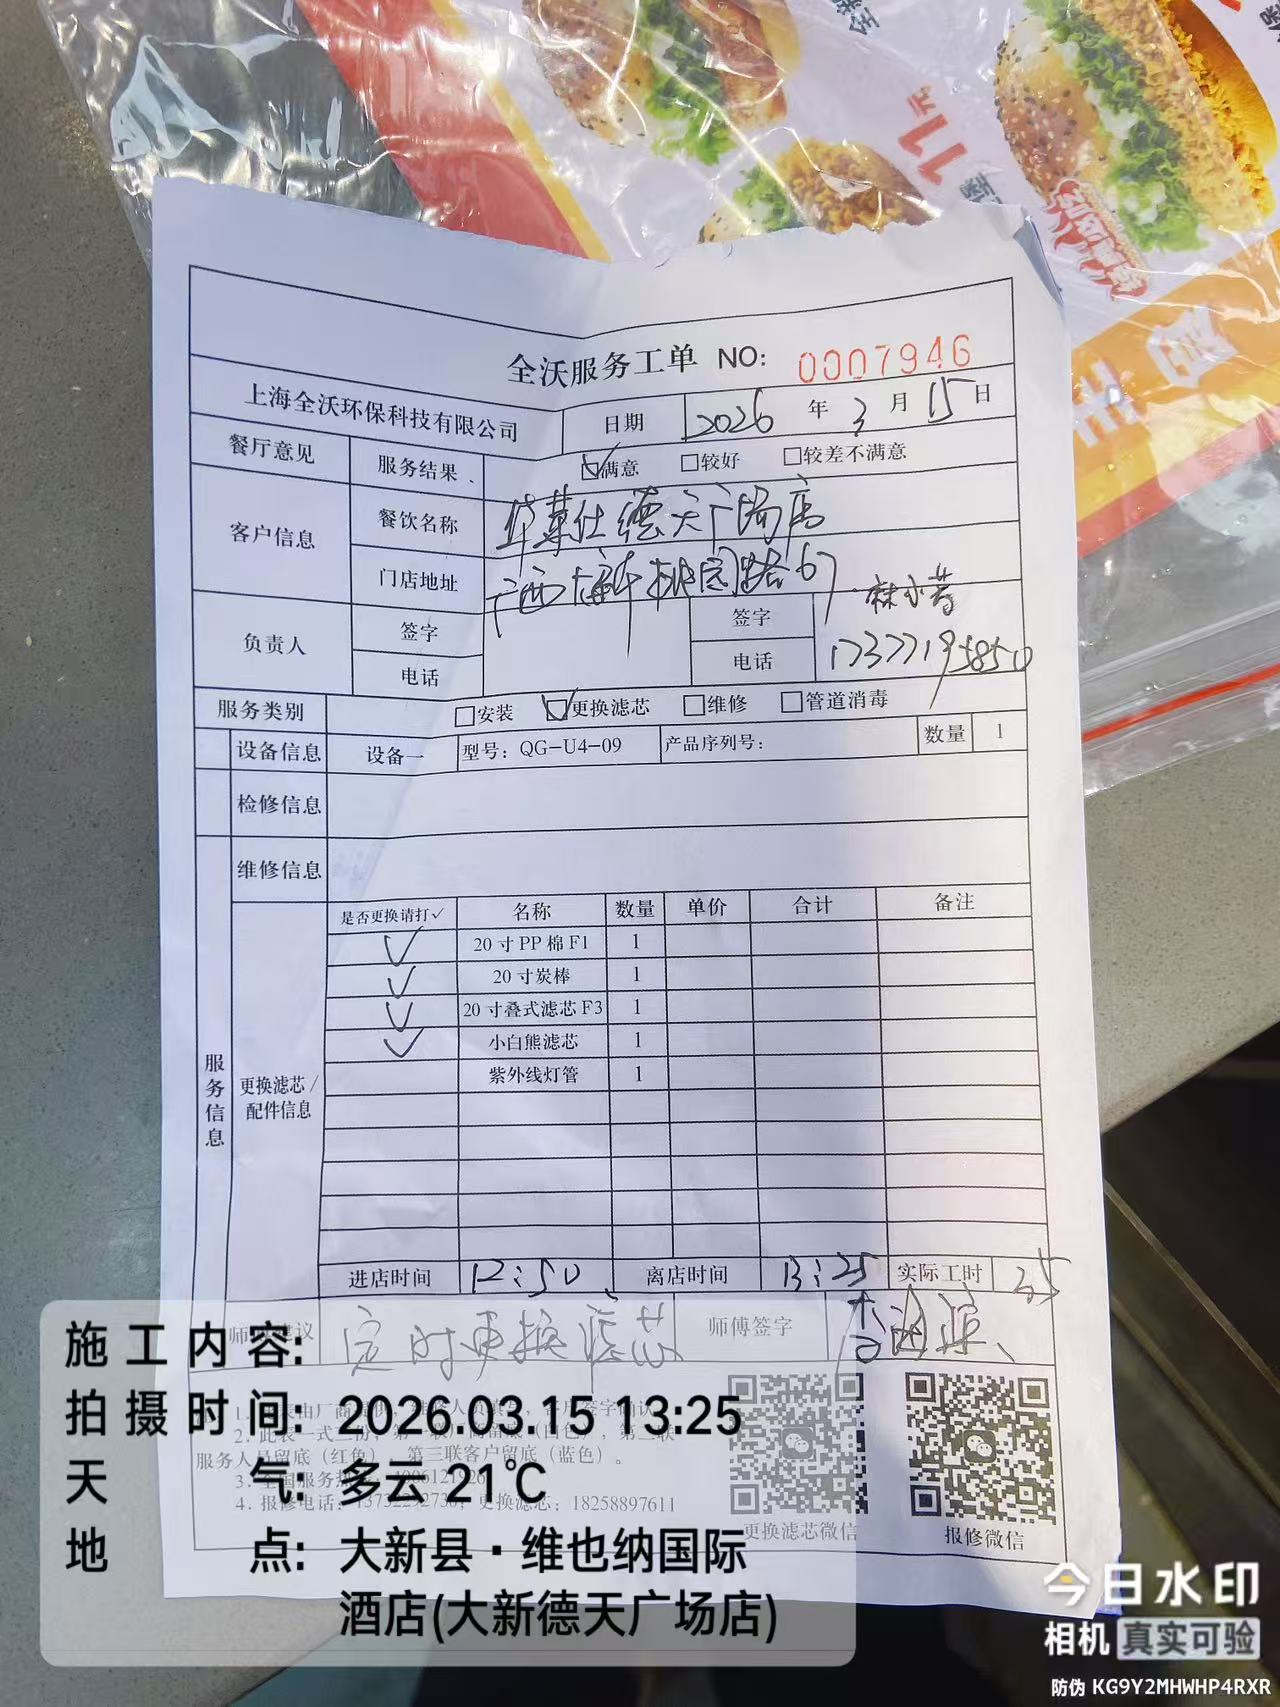 11元
全沃服务工单 NO: 0007946
上海全沃环保科技有限公司 日期 2026 年 3 月 15 日
餐厅意见 服务结果 ☑满意 □较好 □较差不满意
客户信息 餐饮名称 华莱仕德天广场店
门店地址 广西大新桃园路67
负责人 签字 签字 林小
电话 电话 17377195850
服务类别 □安装 ☑更换滤芯 □维修 □管道消毒
设备信息 设备一 型号: QG-U4-09 产品序列号: 数量 1
检修信息
维修信息
服务信息
更换滤芯/配件信息
是否更换请打✓ 名称 数量 单价 合计 备注
✓ 20寸PP棉F1 1
✓ 20寸炭棒 1
✓ 20寸叠式滤芯F3 1
✓ 小白熊滤芯 1
紫外线灯管 1
进店时间 12:50 离店时间 13:25 实际工时 35
定时更换滤芯 师傅签字
服务人员留底（红色） 第三联客户留底（蓝色）。
4. 报修电话: 更换滤芯: 18258897611
更换滤芯微信 报修微信
施工内容:
拍摄时间: 2026.03.15 13:25
天气: 多云 21℃
地点: 大新县·维也纳国际
酒店(大新德天广场店)
今日水印
相机 真实可验
防伪 KG9Y2MHWHP4RXR